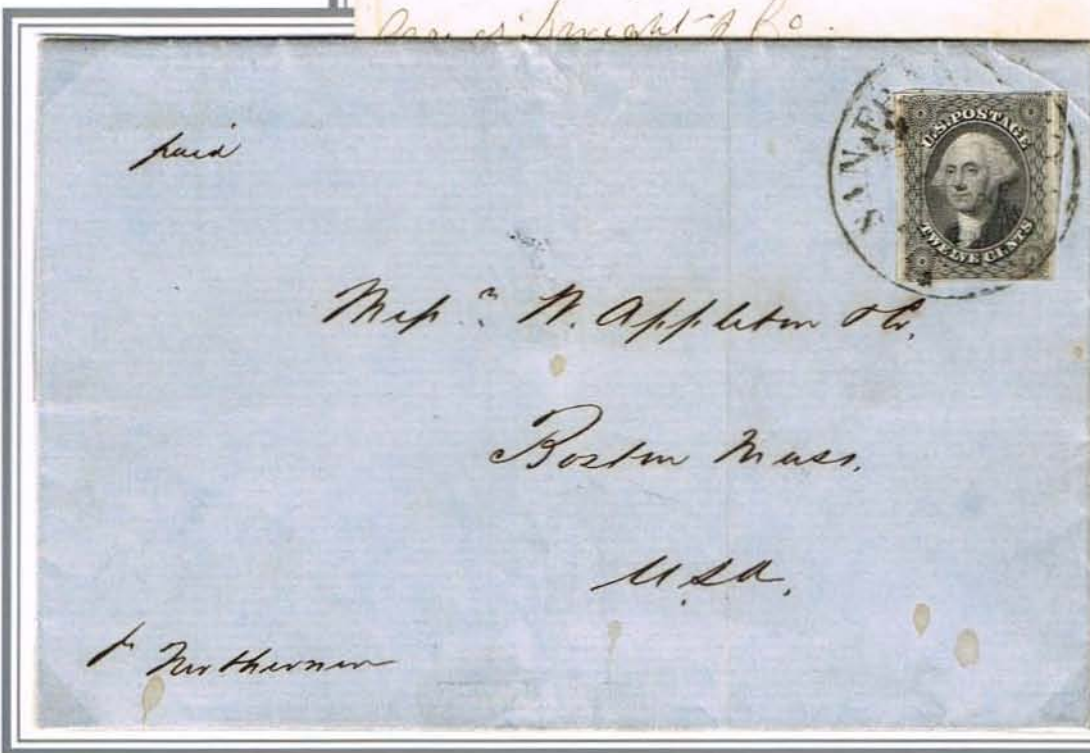 & Co.
paid
SAN FR
U.S. POSTAGE
TWELVE CENTS
Messrs W. Appleton & Co,
Boston Mass.
U.S.A.
pr Northerner